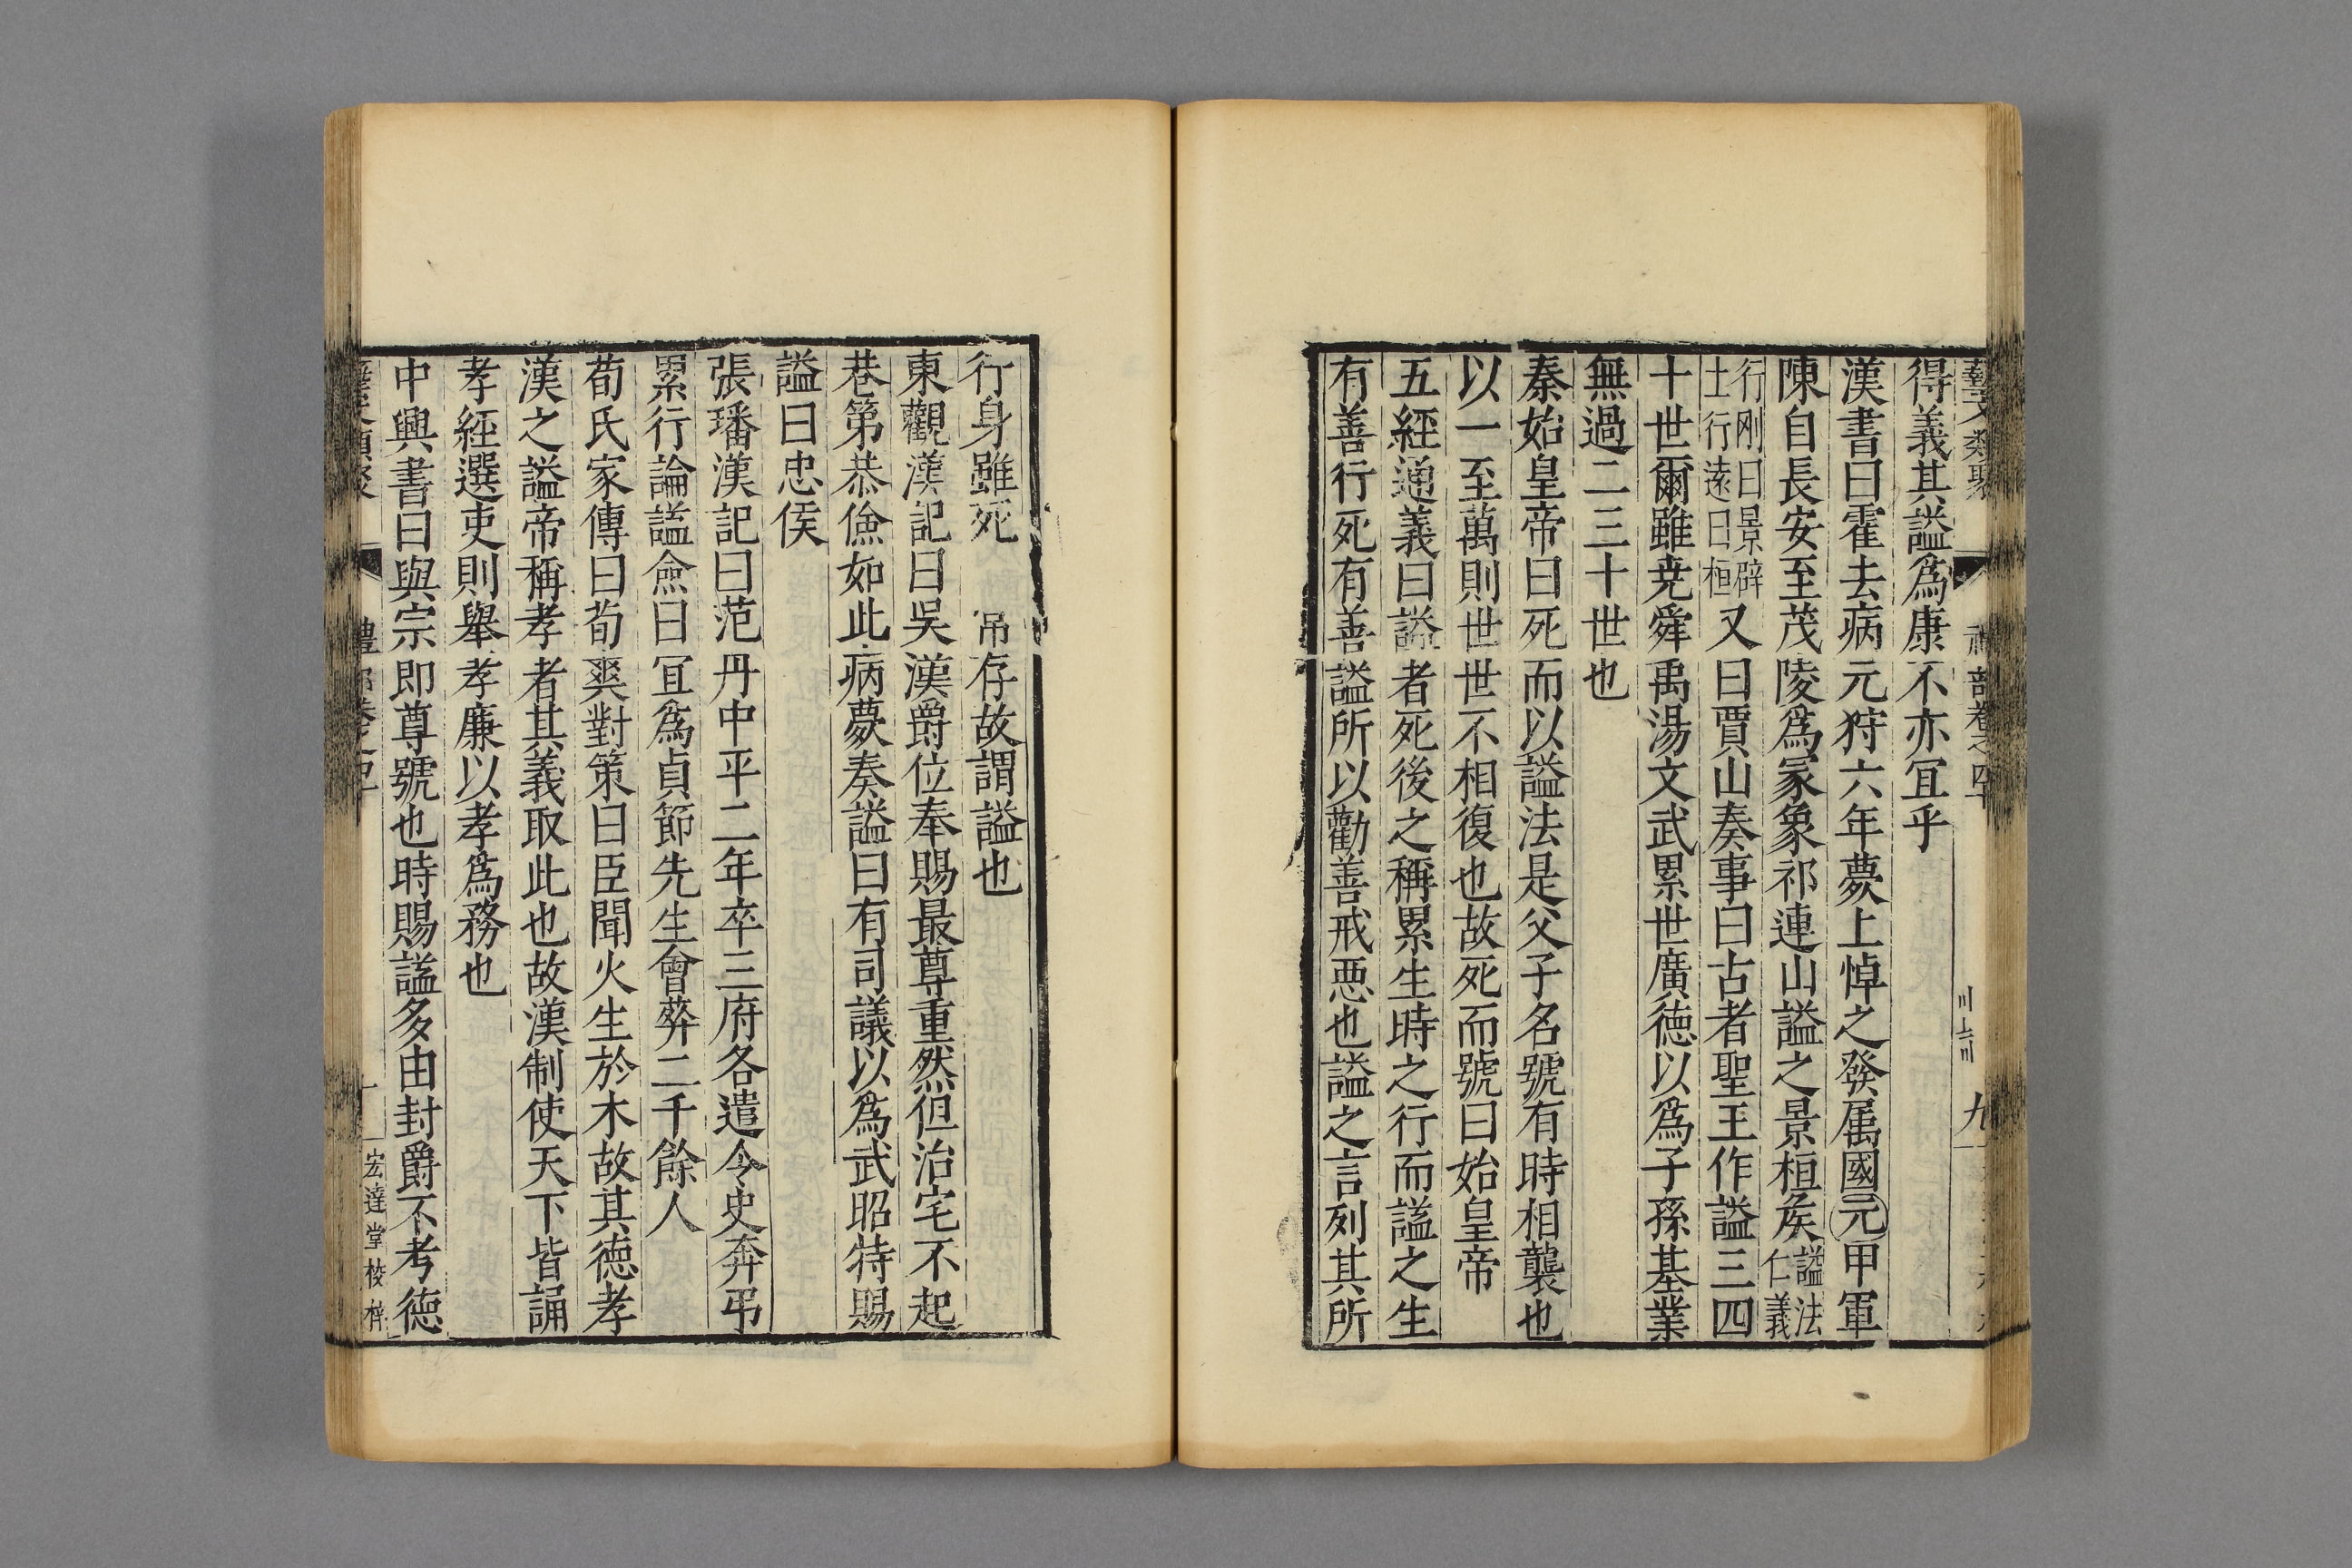 藝文類聚 禮部卷之四十 九
得義其謚爲康不亦宜乎
漢書曰霍去病元狩六年薨上悼之發属國元甲軍
陳自長安至茂陵爲冢象祁連山謚之景桓侯謚法仁義
行刚曰景辟土行遠曰桓又曰賈山奏事曰古者聖王作謚三四
十世爾雖尭舜禹湯文武累世廣徳以爲子孫基業
無過二三十世也
秦始皇帝曰死而以謚法是父子名號有時相襲也
以一至萬則世世不相復也故死而號曰始皇帝
五經通義曰謚者死後之稱累生時之行而謚之生
有善行死有善謚所以勸善戒惡也謚之言列其所
行身雖死 名常存故謂謚也
東觀漢記曰吳漢爵位奉賜最尊重然但治宅不起
巷第恭儉如此病薨奏謚曰有司議以爲武昭特賜
謚曰忠侯
張璠漢記曰范丹中平二年卒三府各遣令史奔弔
累行論謚僉曰宜爲貞節先生會葬二千餘人
荀氏家傳曰荀爽對策曰臣聞火生於木故其徳孝
漢之謚帝稱孝者其義取此也故漢制使天下皆誦
孝經選吏則舉孝廉以孝爲務也
中興書曰與宗即尊號也時賜謚多由封爵不考徳
藝文類聚 禮部卷之四十 十 宏達堂校梓